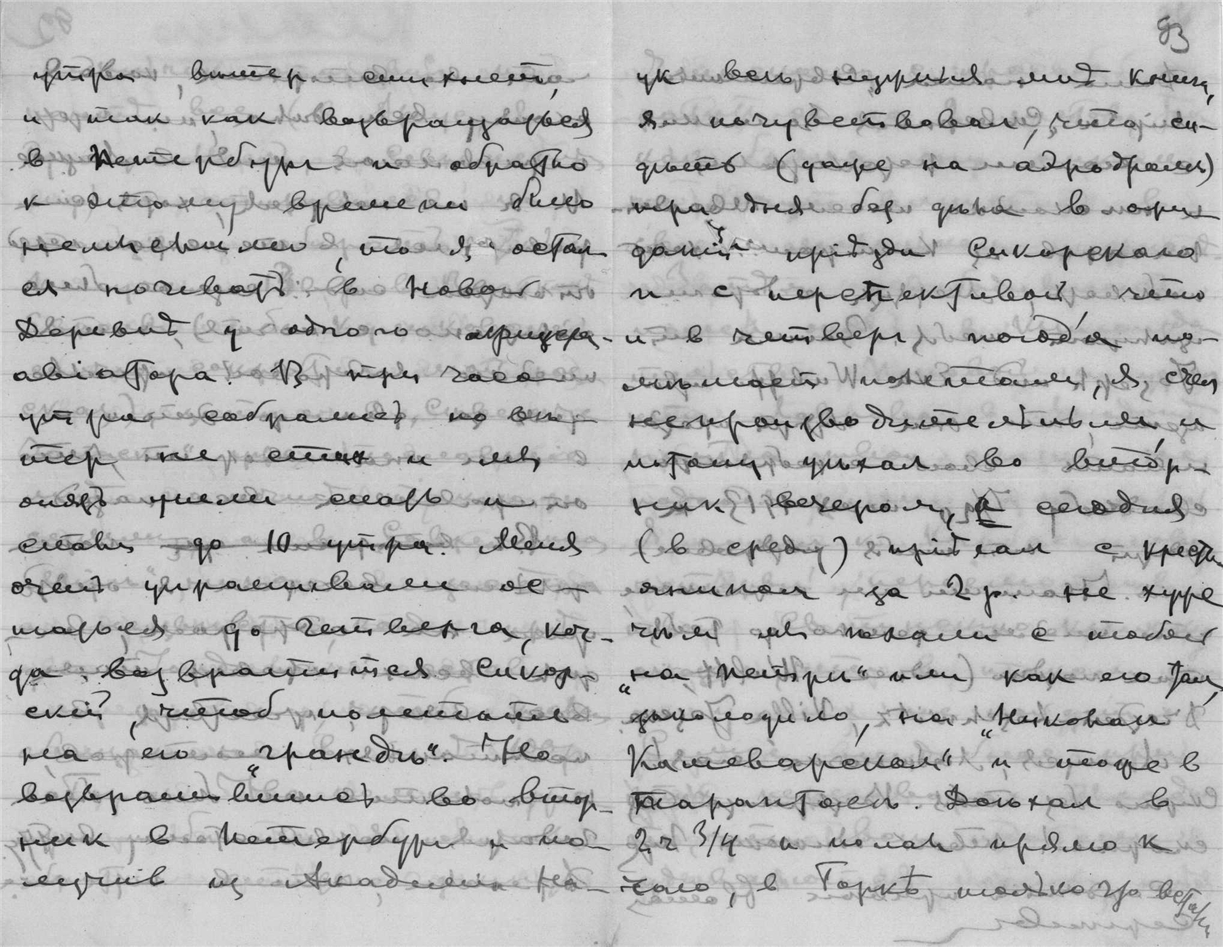 утра, ветер стихнет,
и так как возвращаться
в Петербург и обратно
к этому времени было
немыслимо, то я остал
ся ночевать в Новой
Деревнѣ у одного офицера-
авіатора. В три часа
утра собрались но вѣ-
тер не стих и мы
опять легли спать и
спали до 10 утра. Меня
очень упрашивали ос-
таться до четверга, ког-
да возвратится Сикор-
скій, чтоб полетать
на его „грандѣ“. Но
возвратившись во втор-
ник в Петербург и по-
лучив из Академіи На-
83
ук весь нужный мнѣ книги,
я почувствовал, что си-
дѣть (даже на аэродромѣ)
три дня без дѣла в ожи-
даніи пріѣзда Сикорскаго
и с перспективой что
и в четверг погода по-
мѣшает полетам, я счел
непроизводительным и
потому уѣхал во втор-
ник вечером, и сегодня
(в среду) пріѣхал с кресть
янином за 2 р. не хуже
чѣм мы ѣхали с тобой
„на Петри“ или как его там
звали, на „Николаи
Кашеварском“ и тоже в
тарантасѣ. Доѣхал в
2 ч 3/4 и попал прямо к
чаю, в Горкѣ только